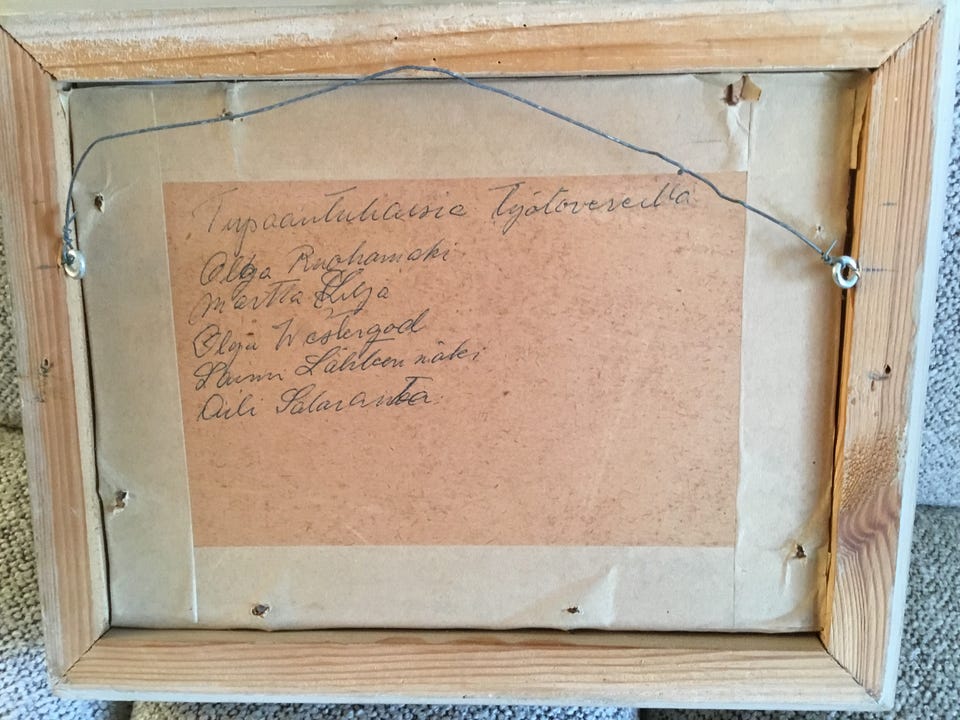 Tupaantuliaisia Työtovereilta
Olga Ruohamaki
Martta Lilja
Olga Westergod
Lahteenmäki
Aili Salaranta